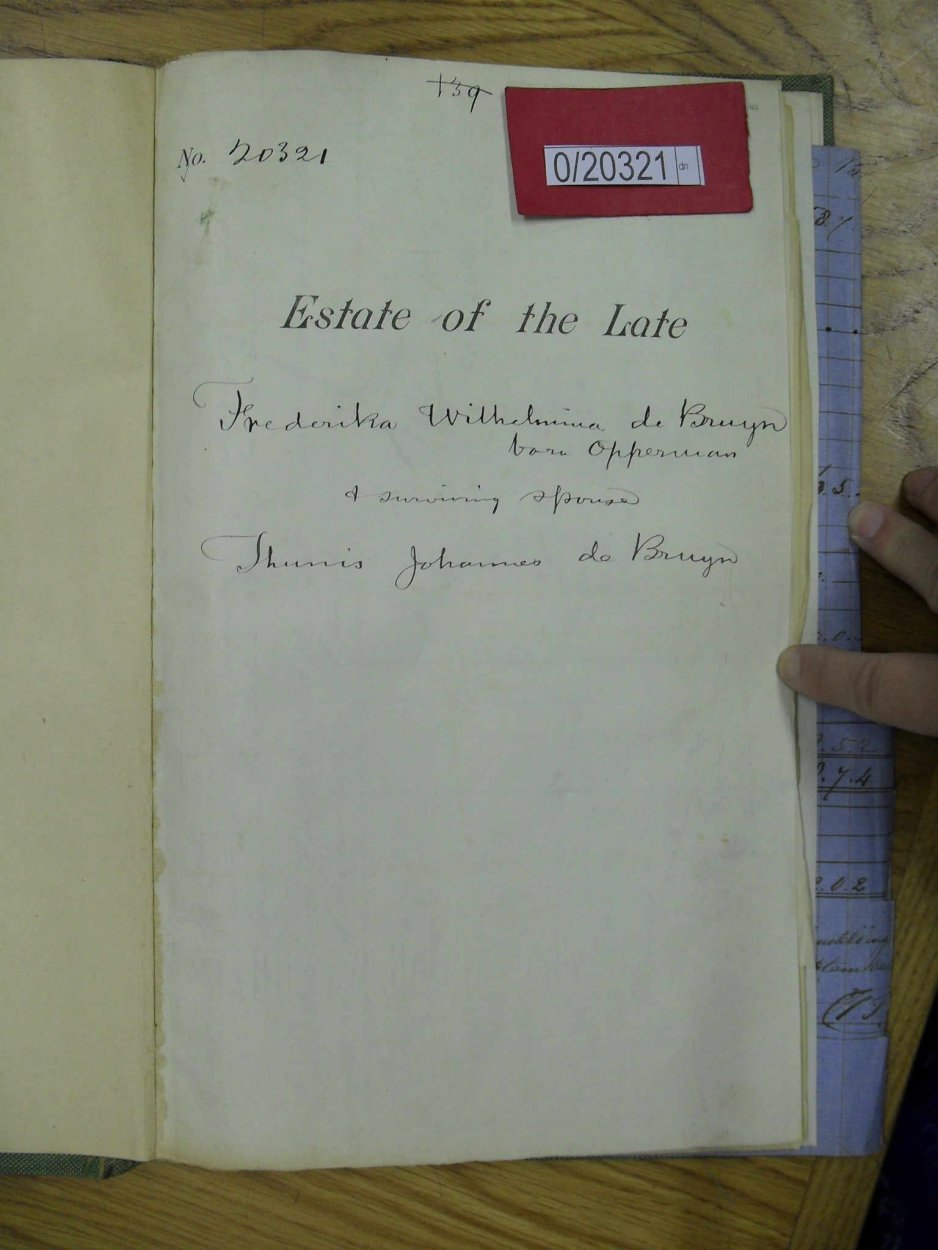 139
No. 20321
0/20321 dn
Estate of the Late
Frederika Wilhelmina de Bruyn
born Opperman
& surviving spouse
Thunis Johannes de Bruyn
8.7
3.5.
0.0
.5.2
0.7.4
2.0.2